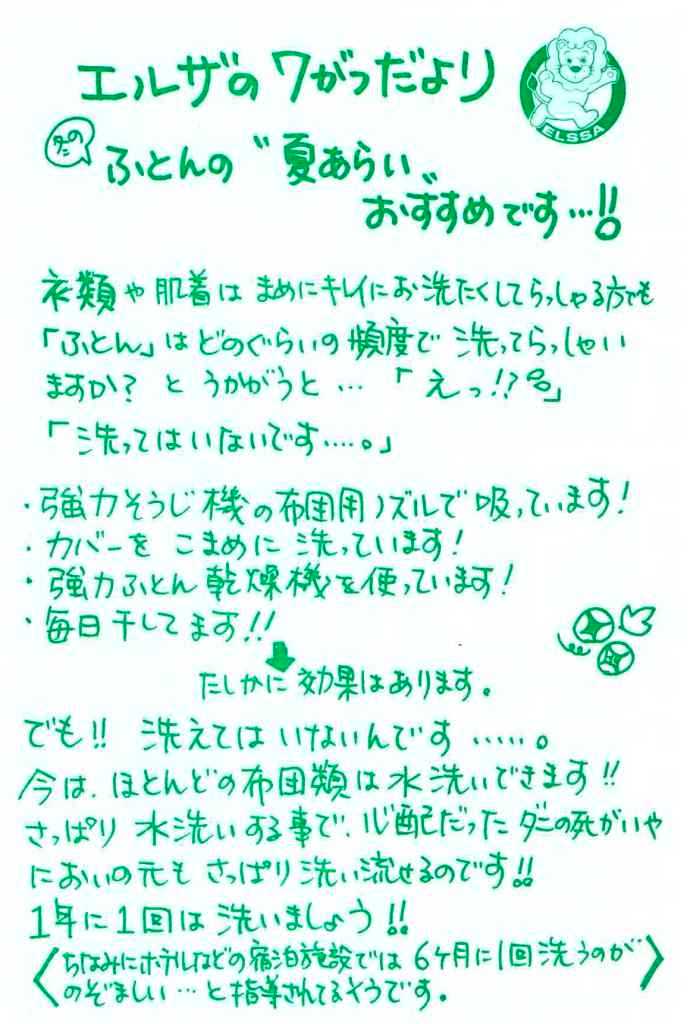 エルザの7がつだより
ELSSA
ふとんの"夏あらい"
おすすめです…!!
衣類や肌着はまめにキレイにお洗たくしてらっしゃる方でも
「ふとん」はどのぐらいの頻度で洗ってらっしゃい
ますか?とうかがうと…「えっ!?」
「洗ってはいないです‥‥。」
・強力そうじ機の布団用ノズルで吸っています!
・カバーをこまめに洗っています!
・強力ふとん乾燥機を使っています!
・毎日干してます!!
たしかに効果はあります。
でも!!洗えてはいないんです‥‥‥。
今は、ほとんどの布団類は水洗いできます!!
さっぱり水洗いする事で、心配だったダニの死がいや
においの元もさっぱり洗い流せるのです!!
1年に1回は洗いましょう!!
〈ちなみにホテルなどの宿泊施設では6ヶ月に1回洗うのが
のぞましい…と指導されてるそうです。〉